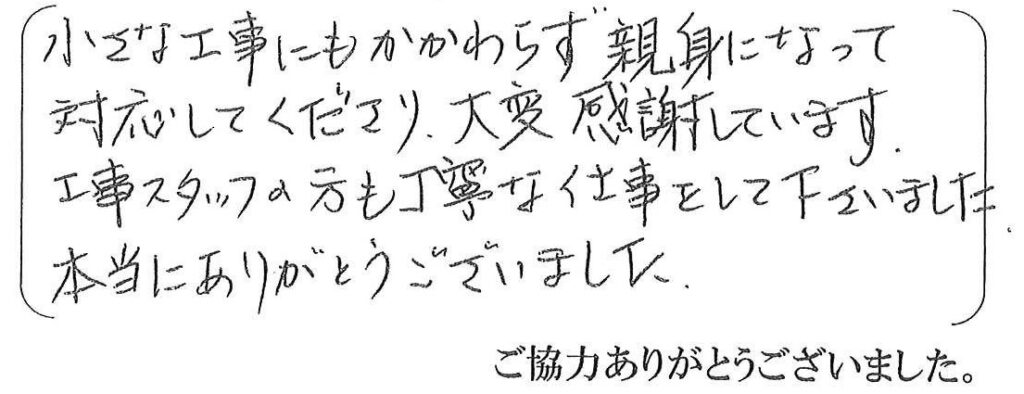 小さな工事にもかかわらず親身になって
対応してくださり、大変感謝しています。
工事スタッフの方も丁寧な仕事をして下さいました。
本当にありがとうございました。
ご協力ありがとうございました。